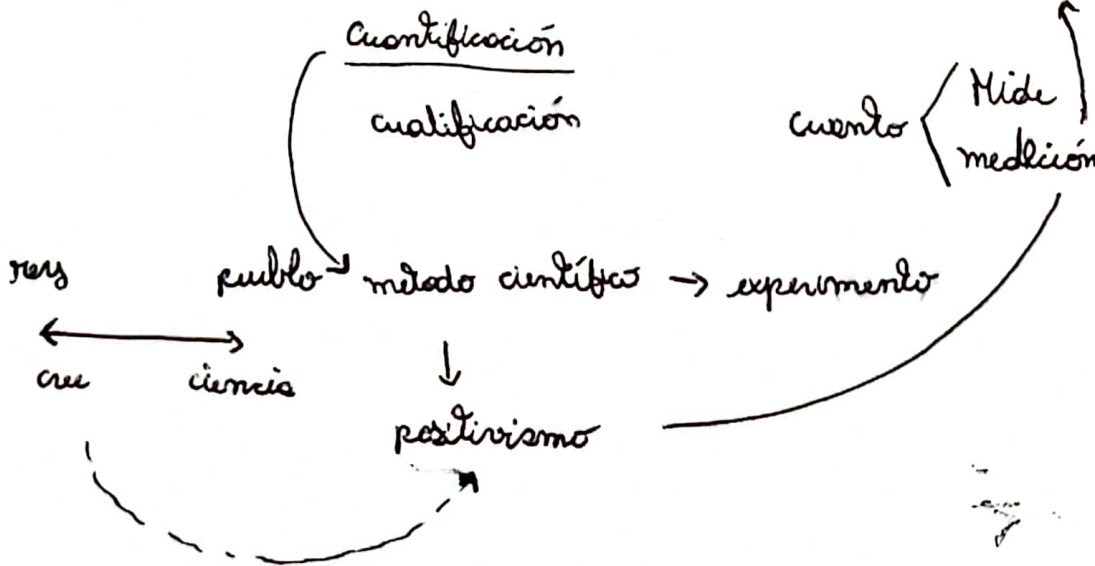 Cuantificación
cualificación
cuanto
Mide
medición
rey pueblo metodo científico → experimento
cree ciencia
positivismo